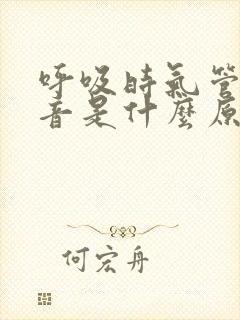 呼吸时气管
音是什麼原
何宏舟